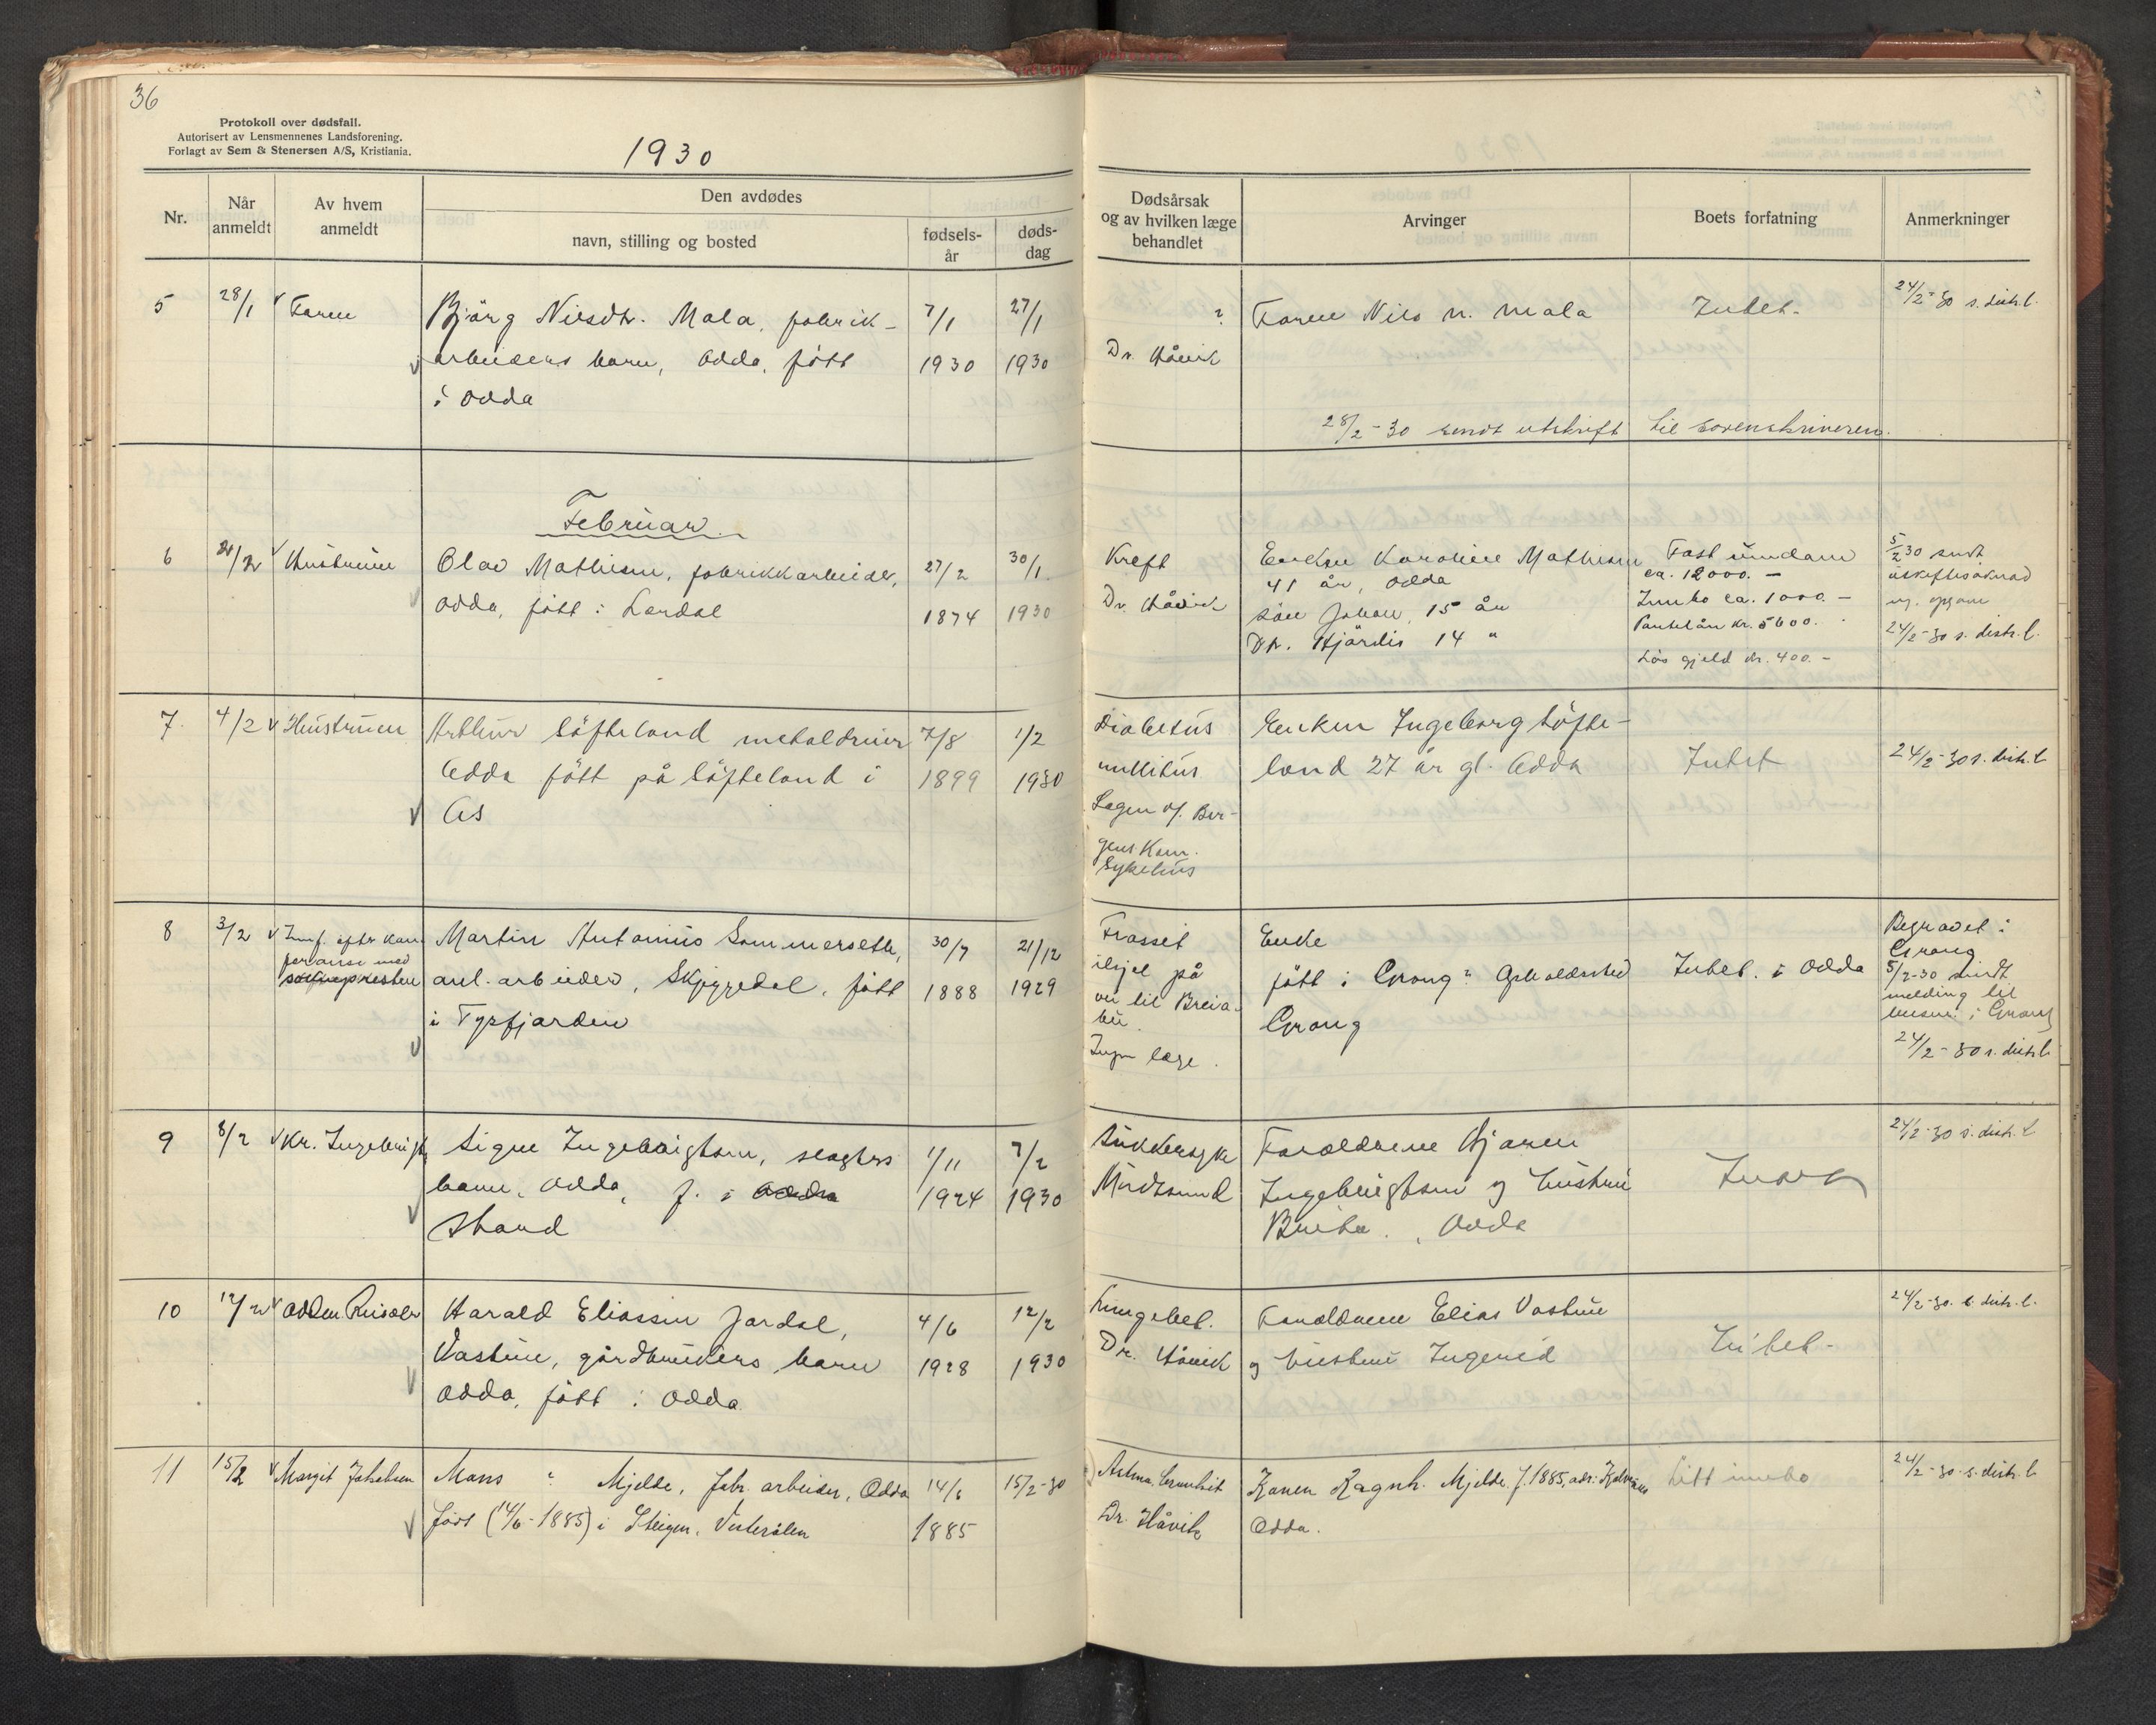 36
Protokoll over dødsfall.
Autorisert av Lensmennenes Landsforening.
Forlagt av Sem & Stenersen A/S, Kristiania.
1930
Nr.
Når anmeldt
Av hvem anmeldt
Den avdødes
navn, stilling og bosted
fødsels-år
døds-dag
Dødsårsak og av hvilken læge behandlet
Arvinger
Boets forfatning
Anmerkninger
5 28/1 Faren
Bjørg Nilsdtr. Mala, fabrik-
arbeiders barn, Odda, født
i Odda
7/1 1930
27/1 1930
?
Dr. Håvik
Faren Nils N. Mala
Intet.
24/2-30 s. distr.l.
28/2-30 sendt utskrift til sorenskriveren.
Februar.
6 /2 Hustruen
Olav Mathisen, fabrikkarbeider,
Odda, født i Lærdal
27/2 1874
30/1 1930
Kreft
Dr. Håvik
Enken Karoline Mathisen
41 år, Odda
Søn Johan, 15 år
Dtr. Hjördis 14 "
Fast eiendom
ca. 12000.-
Innbo ca. 1000.-
Pantelån kr. 5600.
Løs gjeld kr. 400.-
5/2 30 sendt
uskiftesøknad
24/2-30 s. distr.l.
7. 4/2 Hustruen
Arthur Söfteland
Odda født på Söfteland i
Os
7/8 1899
1/2 1930
Diabetus
mellitus
Legen v/ Ber-
gens Kom.
Sykehus
Enken Ingeborg Söfte-
land 27 år gl. Odda
Intet
24/2-30 s. distr.l
8 3/2 Innf. efter kon-
feranse med
sokneprestene
Martin Antonius Sommerseth,
anl. arbeider, Skjeggedal, født
i Tysfjorden
30/7 1888
21/12 1929
Frosset
ihjel på
vei til Breia-
bu.
Ingen læge.
Enke
født i Grong? Opholdssted
Grong
Intet. i Odda
Begravet i
Grong
5/2-30 sendt
melding til
lensm. i Grong
24/2-30 s. distr.l.
9 8/2 Kr. Ingebrigts
Signe Ingebrigtsen, slagters
barn, Odda, f. i Odda
Strand
1/11 1924
7/2 1930
Sukkersyke
Mindesund
Foreldrene Hj
Ingebrigtsen og hustru
Brita, Odda
24/2-30 s. distr.l.
10 12/2 Odden Reisæter
Harald Eliassen Jordal,
Vastun, gårdbrukers barn
Odda, født i Odda
4/6 1928
12/2 1930
Lungebet.
Dr. Håvik
Foreldrene Elias Vastun
og hustru Ingerid
Intet-
24/2-30. s. distr.l.
11 15/2 Margit Jakobsen
Mons ? Mjelde, fabr. arbeider, Odda
Født (14/6-1885) i Steigen, Vesterålen
14/6 1885
15/2-30
Astma,
Dr. Håvik
Konen Ragnh. Mjelde f. 1885, adr:
Odda.
Litt innbo
24/2-30 s. distr.l.